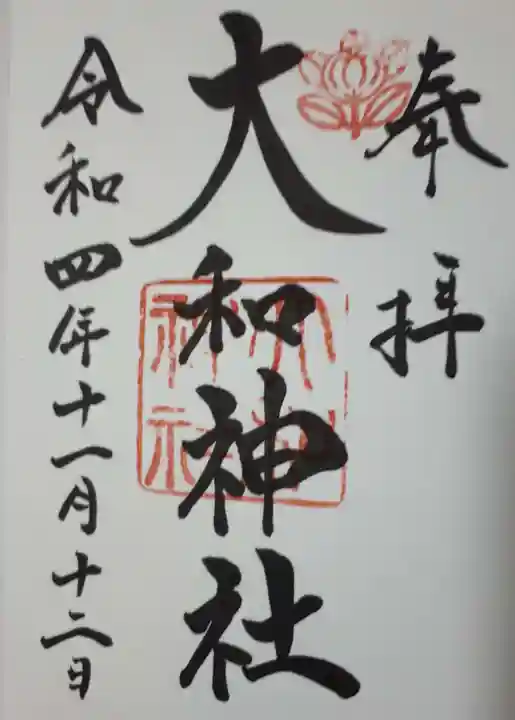 奉拝
大和神社
令和四年十一月十二日
大和神社